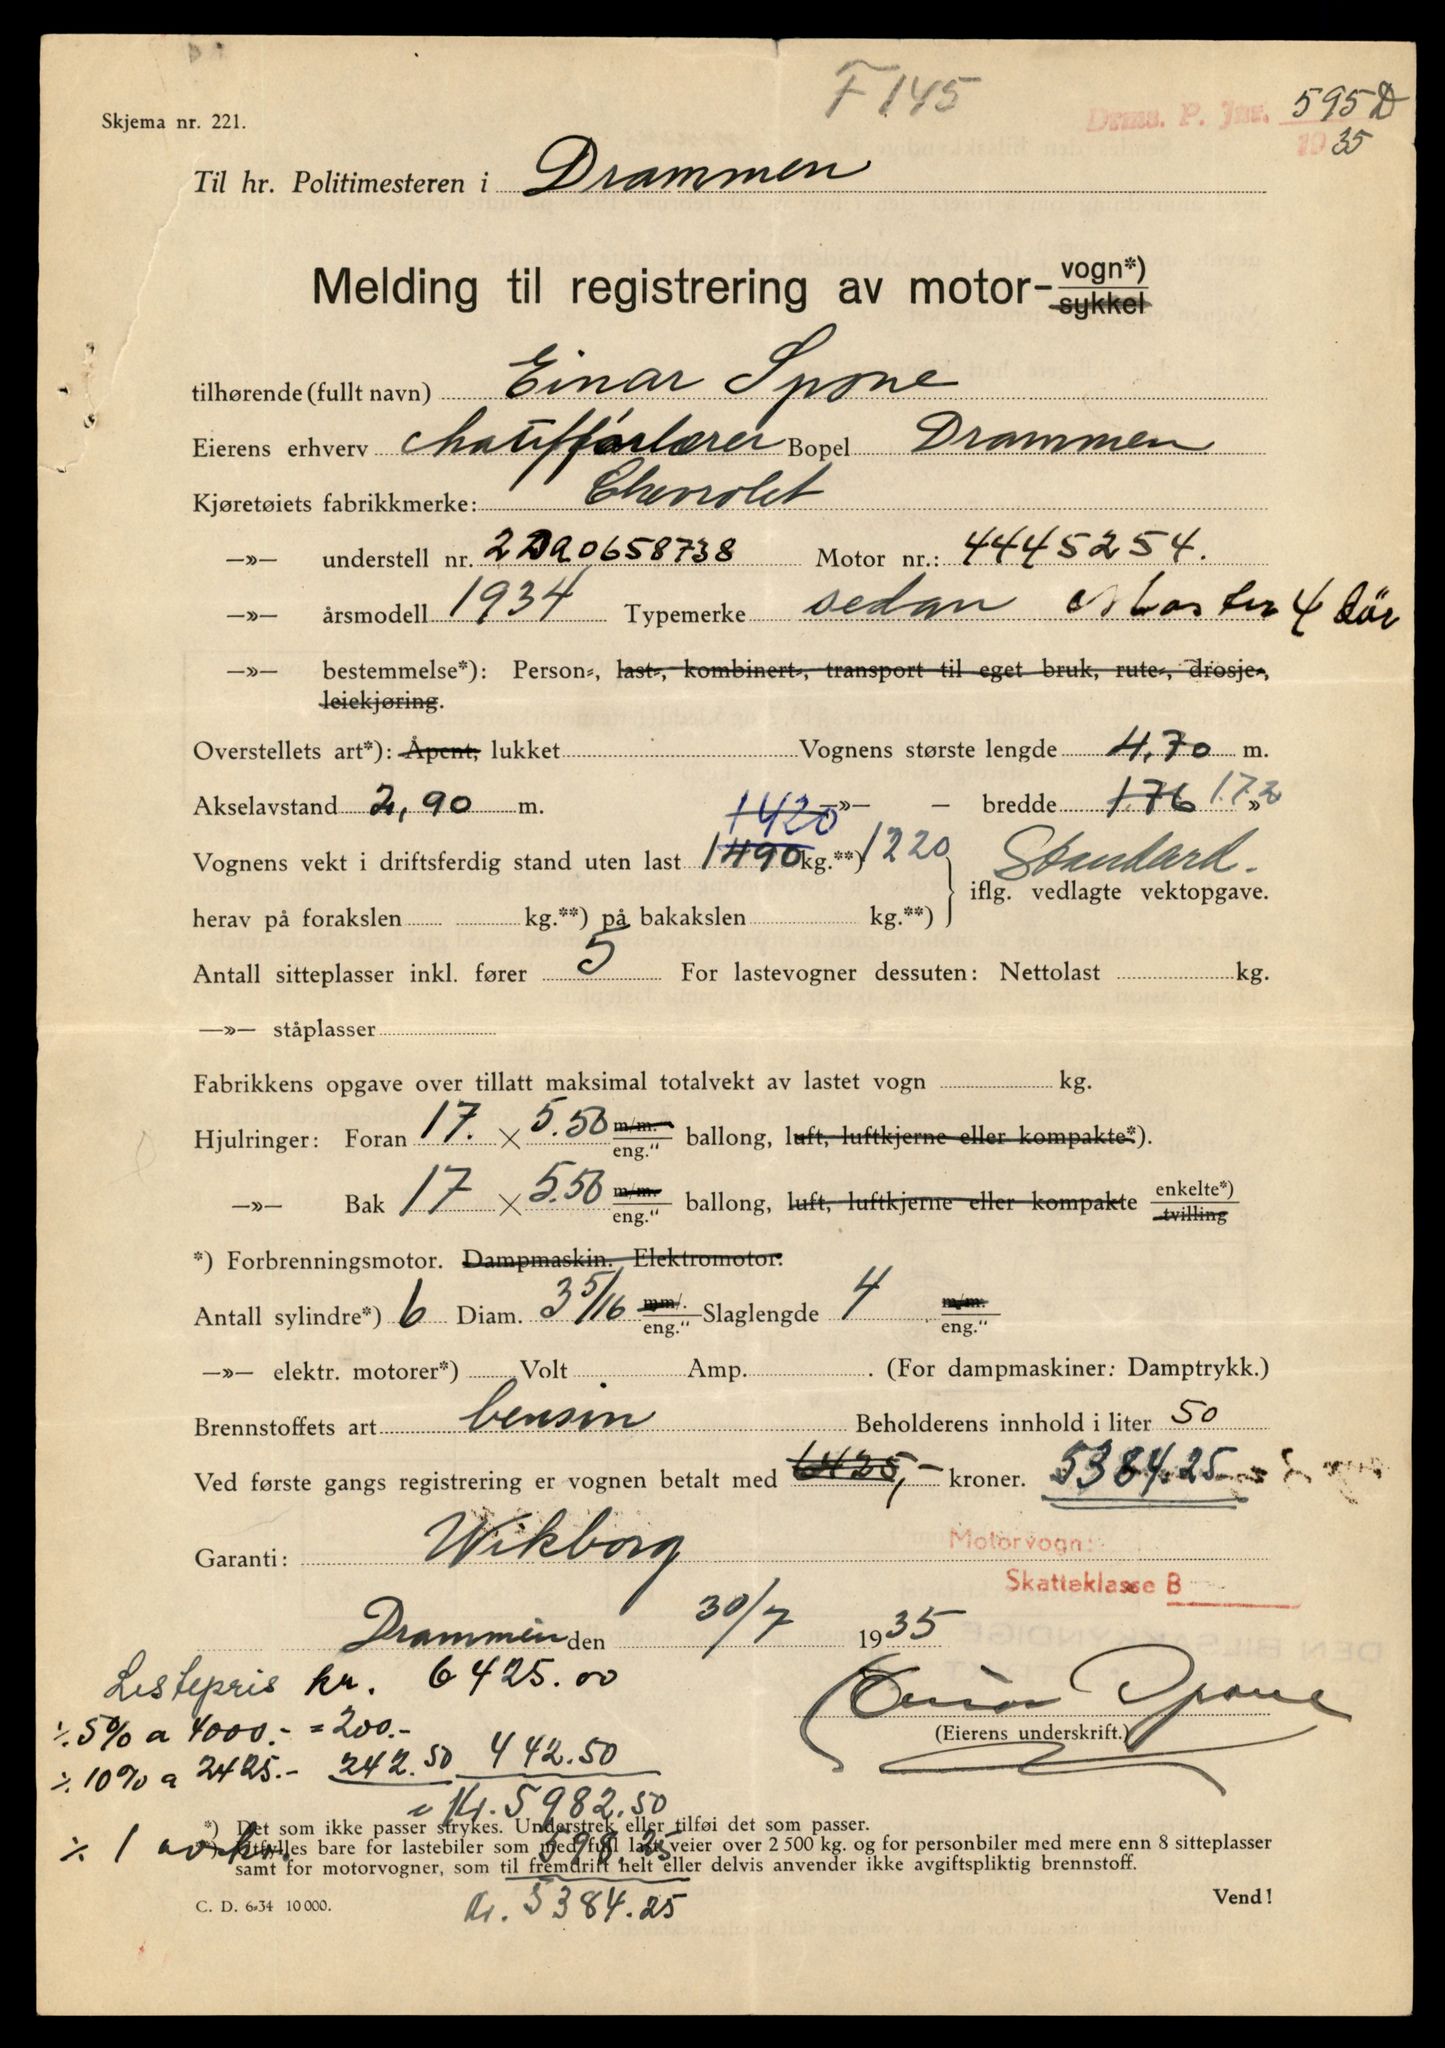 F 145
Drms. P. Jnr. 595 D
1935
Skjema nr. 221.
Til hr. Politimesteren i Drammen
Melding til registrering av motor-vogn*)
sykkel
tilhørende (fullt navn) Einar Spone
Eierens erhverv chaufførlærer Bopel Drammen
Kjøretøiets fabrikkmerke: Chevrolet
—»— understell nr. 2DA0658738 Motor nr.: 4445254.
—»— årsmodell 1934 Typemerke sedan Master 4 dör
—»— bestemmelse*): Person-, last-, kombinert-, transport til eget bruk, rute-, drosje-,
leiekjøring.
Overstellets art*): Åpent, lukket Vognens største lengde 4,70 m.
Akselavstand 2,90 m. —»— — bredde 1.76 1.72 »
1420
Vognens vekt i driftsferdig stand uten last 1490 kg.**) 1220 Standard.
iflg. vedlagte vektopgave.
herav på forakslen kg.**) på bakakslen kg.**)
Antall sitteplasser inkl. fører 5 For lastevogner dessuten: Nettolast kg.
—»— ståplasser
Fabrikkens opgave over tillatt maksimal totalvekt av lastet vogn kg.
Hjulringer: Foran 17. × 5.50 m/m. eng." ballong, luft, luftkjerne eller kompakte*).
—»— Bak 17 × 5.50 m/m. eng." ballong, luft, luftkjerne eller kompakte enkelte*) tvilling
*) Forbrenningsmotor. Dampmaskin. Elektromotor.
Antall sylindre*) 6 Diam. 3 5/16 mm/. eng." Slaglengde 4 m/m. eng."
—»— elektr. motorer*) Volt Amp. . (For dampmaskiner: Damptrykk.)
Brennstoffets art bensin Beholderens innhold i liter 50
Ved første gangs registrering er vognen betalt med 6425,- kroner. 5384.25
Garanti: Wikborg
Motorvogn:
Skatteklasse B
Drammen den 30/7 1935
Listepris kr. 6425.00
Einar Spone
(Eierens underskrift.)
÷ 5% a 4000.- = 200.-
÷ 10% a 2425.- 242.50 442.50
= Kr. 5982.50
*) Det som ikke passer strykes. Understrek eller tilføi det som passer.
÷ 1 598.25
**) Utfylles bare for lastebiler som med full last veier over 2 500 kg. og for personbiler med mere enn 8 sitteplasser
samt for motorvogner, som til fremdrift helt eller delvis anvender ikke avgiftspliktig brennstoff.
Kr. 5384.25
C. D. 6-34 10 000.
Vend!